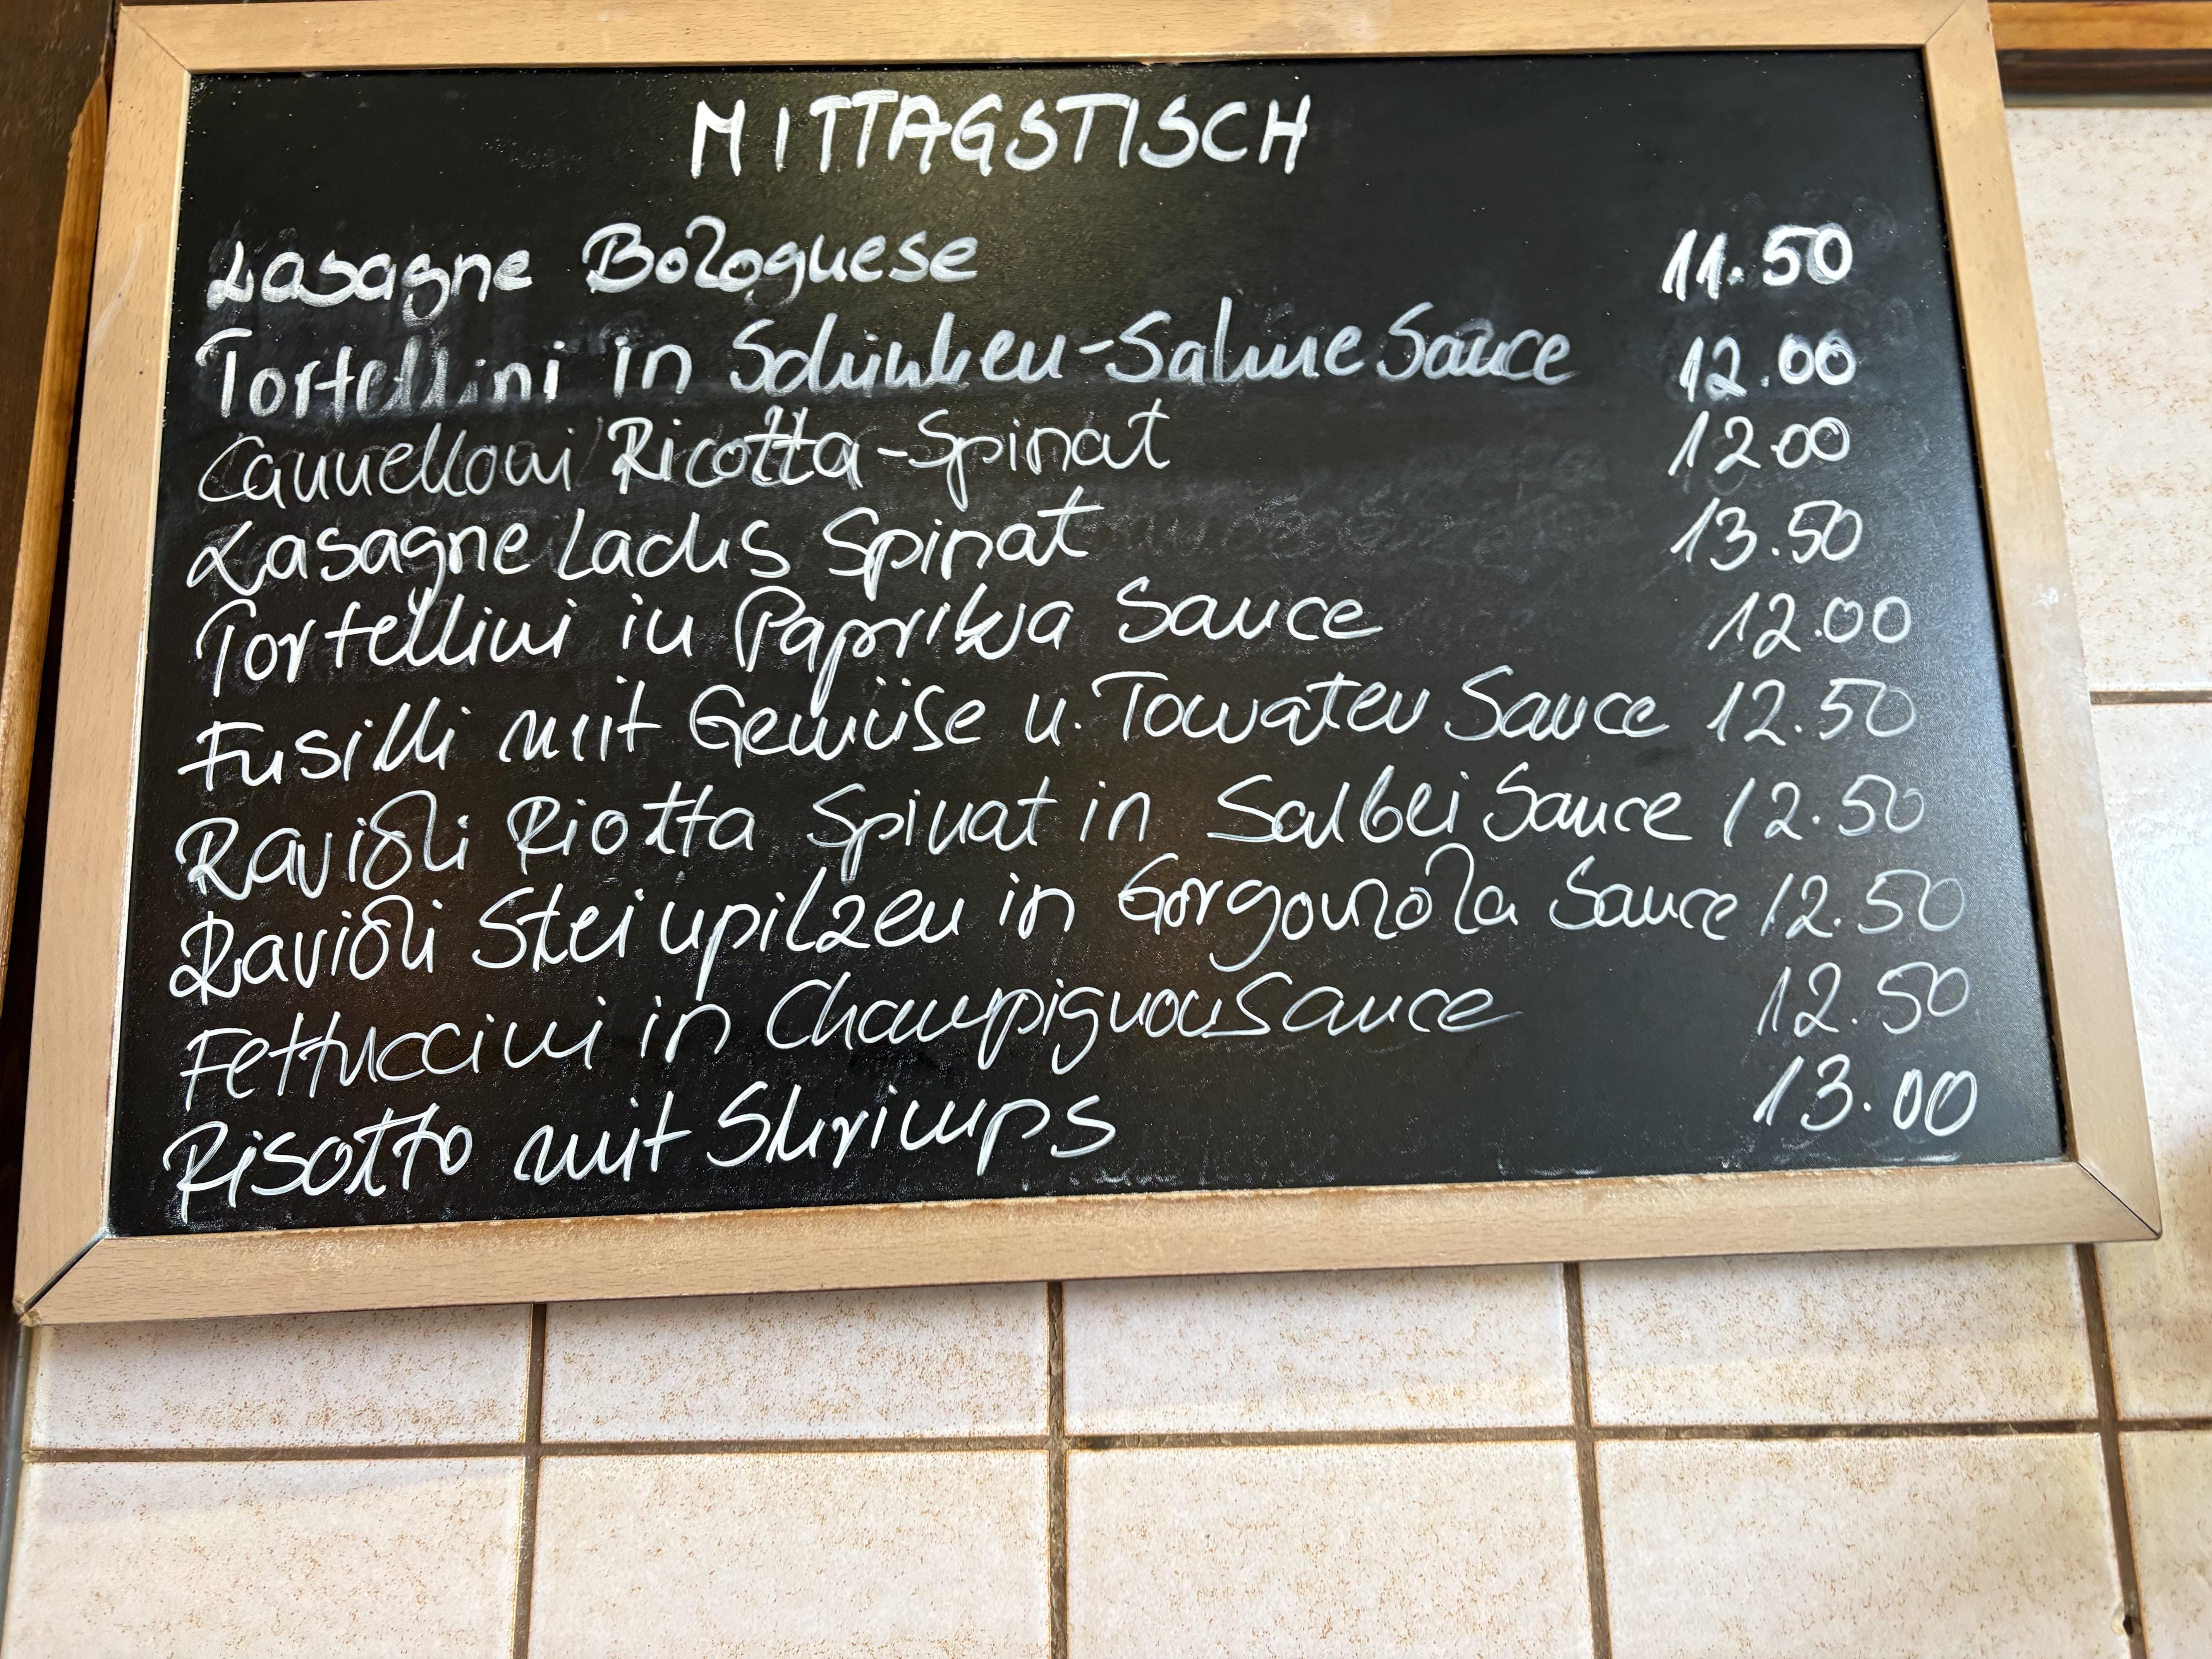 MITTAGSTISCH
Lasagne Bolognese 11.50
Tortellini in Schinken-Sahne Sauce 12.00
Cannelloni Ricotta-Spinat 12.00
Lasagne Lachs Spinat 13.50
Tortellini in Paprika Sauce 12.00
Fusilli mit Gemüse u. Tomaten Sauce 12.50
Ravioli Riotta Spinat in Salbei Sauce 12.50
Ravioli Steinpilzen in Gorgonzola Sauce 12.50
Fettuccini in Champignon Sauce 12.50
Risotto mit Shrimps 13.00